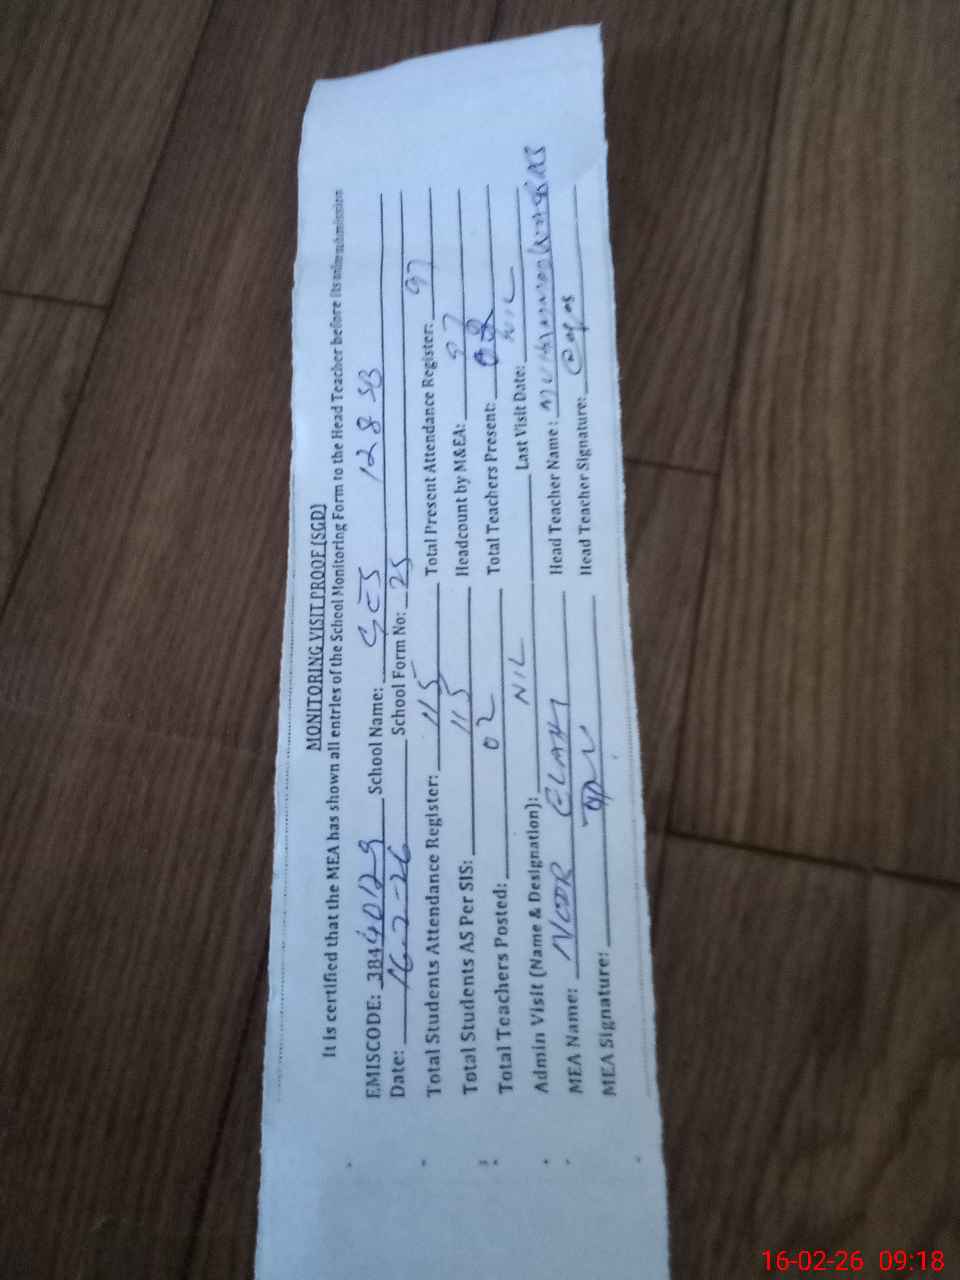 MONITORING VISIT PROOF (SGD)
It is certified that the MEA has shown all entries of the School Monitoring Form to the Head Teacher before its online submission
EMISCODE: 38440129 School Name: GES 128 SB
Date: 16-2-26 School Form No: 25
Total Students Attendance Register: 115 Total Present Attendance Register: 97
Total Students AS Per SIS: 115 Headcount by M&EA: 97
Total Teachers Posted: 02 Total Teachers Present: 02
Admin Visit (Name & Designation): NIL Last Visit Date: NIL
MEA Name: NOOR ELAHI Head Teacher Name:
MEA Signature: Head Teacher Signature:
16-02-26 09:18